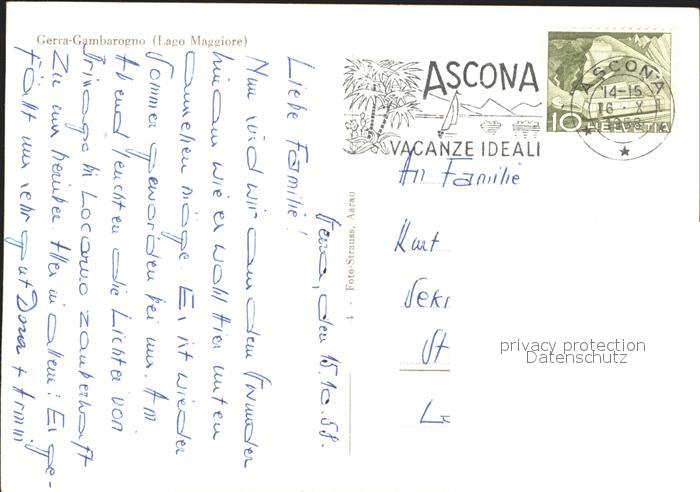 Gerra-Gambarogno (Lago Maggiore)
ASCONA
VACANZE IDEALI
ASCONA
14-15
16. X
1958
10 HELVETIA
4 - Foto-Strauss, Aarau
An Familie
Kurt
Sekr
St
privacy protection
Datenschutz
den 15.10.58.
Liebe Familie!
Nun sind wir aus dem
wie es wohl hier unten
aussehen möge. Es ist wieder
Sommer geworden bei uns. Am
Abend leuchten die Lichter von
Brissago bis Locarno zauberhaft
zu uns herüber. Alles in allem: Es ge-
fällt uns sehr gut Dora + Armin